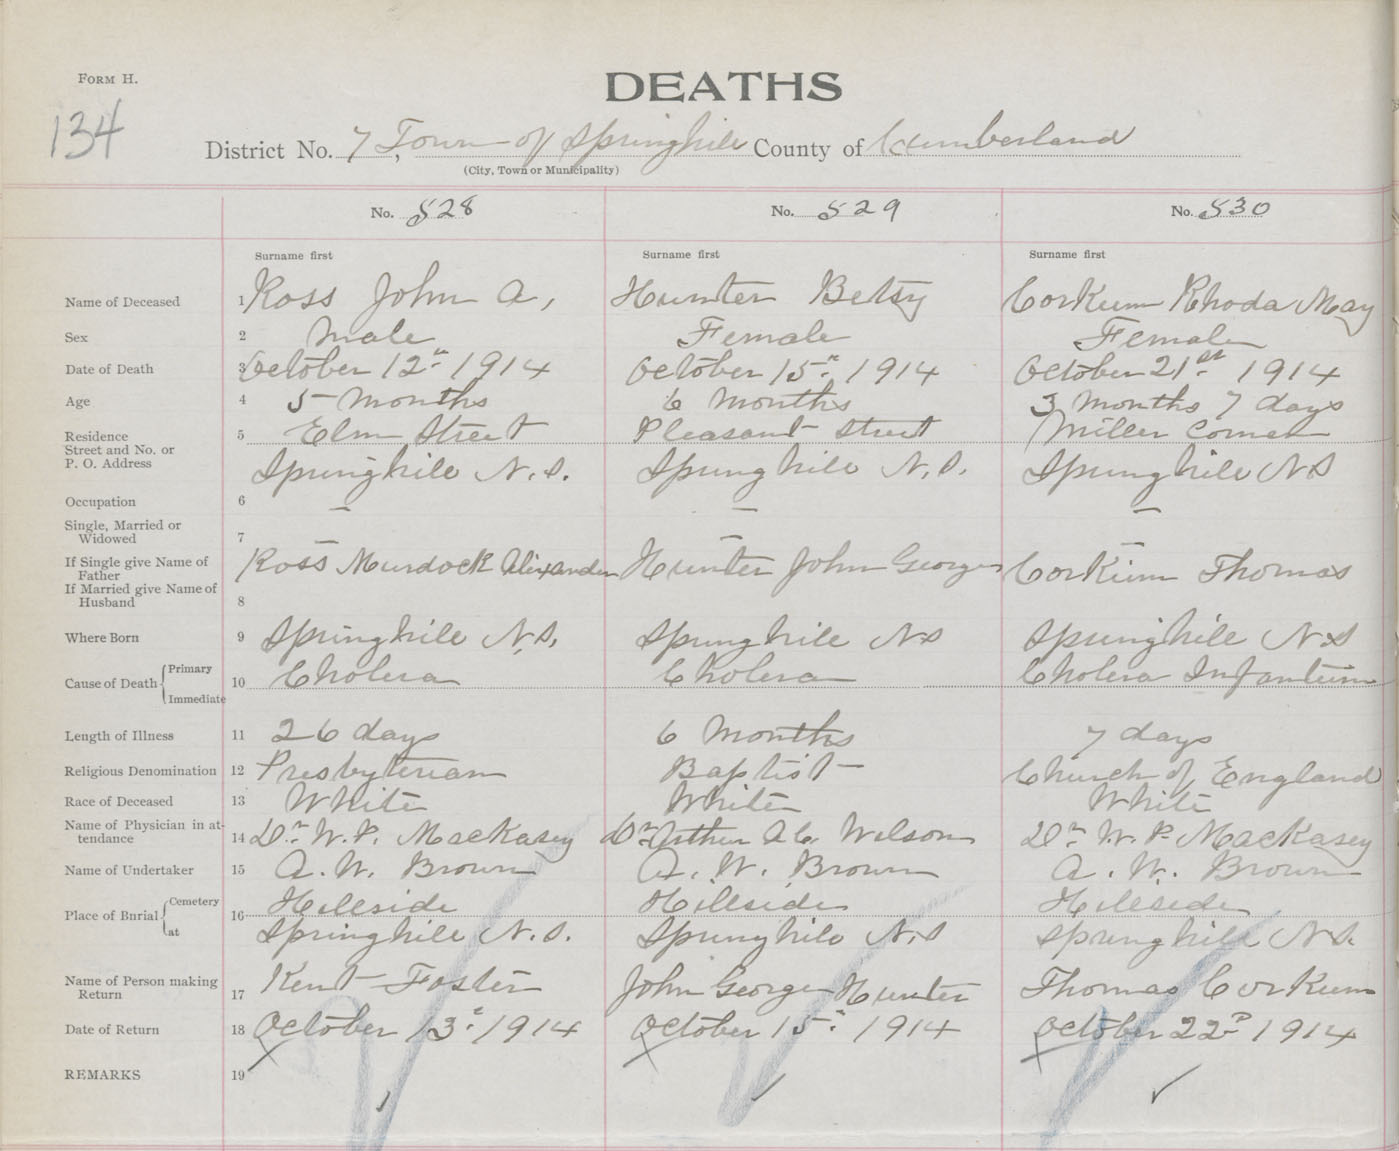 FORM H.
DEATHS
134
District No. 7, Town of Springhill County of Cumberland
(City, Town or Municipality)
No. 528 No. 529 No. 530
Surname first Surname first Surname first
Name of Deceased 1 Ross John A, Hunter Betsy Corkum Rhoda May
Sex 2 Male Female Female
Date of Death 3 October 12th 1914 October 15th 1914 October 21st 1914
Age 4 5 Months 6 Months 3 Months 7 days
Residence 5 Elm Street Pleasant Street Miller Corner
Street and No. or
P. O. Address Springhill N.S. Springhill N.S. Springhill NS
Occupation 6 — — —
Single, Married or
Widowed 7 — — —
If Single give Name of
Father Ross Murdock Alixander Hunter John George Corkum Thomas
If Married give Name of
Husband 8
Where Born 9 Springhill N.S. Springhill NS Springhill NS
Cause of Death { Primary 10 Cholera Cholera Cholera Infantum
Immediate
Length of Illness 11 26 days 6 Months 7 days
Religious Denomination 12 Presbyterian Baptist Church of England
Race of Deceased 13 White White White
Name of Physician in at-
tendance 14 Dr. W. P. MacKasey Dr. Arthur Wilson Dr. W. P. MacKasey
Name of Undertaker 15 A. W. Brown A. W. Brown A. W. Brown
Place of Burial { Cemetery 16 Hillside Hillside Hillside
at Springhill N.S. Springhill N.S Springhill NS.
Name of Person making
Return 17 Kent Foster John George Hunter Thomas Corkum
Date of Return 18 October 13th 1914 October 15th 1914 October 22d 1914
REMARKS 19